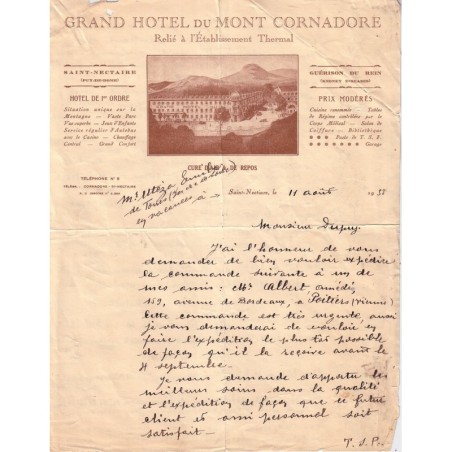 GRAND HOTEL DU MONT CORNADORE
Relié à l'Établissement Thermal
SAINT-NECTAIRE
(PUY-DE-DOME)
HOTEL DE 1er ORDRE
Situation unique sur la
Montagne - Vaste Parc
Vue superbe - Jeux d'Enfants
Service régulier d'Autobus
avec le Casino - Chauffage
Central - Grand Confort
GUÉRISON DU REIN
PRIX MODÉRÉS
Cuisine renommée - Tables
de Régime contrôlées par le
Corps Médical - Salon de
Coiffure - Bibliothèque
Poste de T.S.F.
Garage
CURE D'AIR & DE REPOS
TÉLÉPHONE N° 8
Mr
de Tours
en vacances à
Saint-Nectaire, le 11 août 1935
Monsieur Dupuy.
J'ai l'honneur de vous
demander de bien vouloir expédier
la commande suivante à un de
mes amis: Mr Albert Amédée,
159, avenue de Bordeaux, à Poitiers (Vienne)
Cette commande est très urgente, aussi
je vous demanderai de vouloir en
faire l'expédition le plus tôt possible
de façon qu'il la reçoive avant le
4 septembre.
Je vous demande d'apporter les
meilleurs soins dans la qualité
et l'expédition de façon que ce futur
client et ami personnel soit
satisfait.